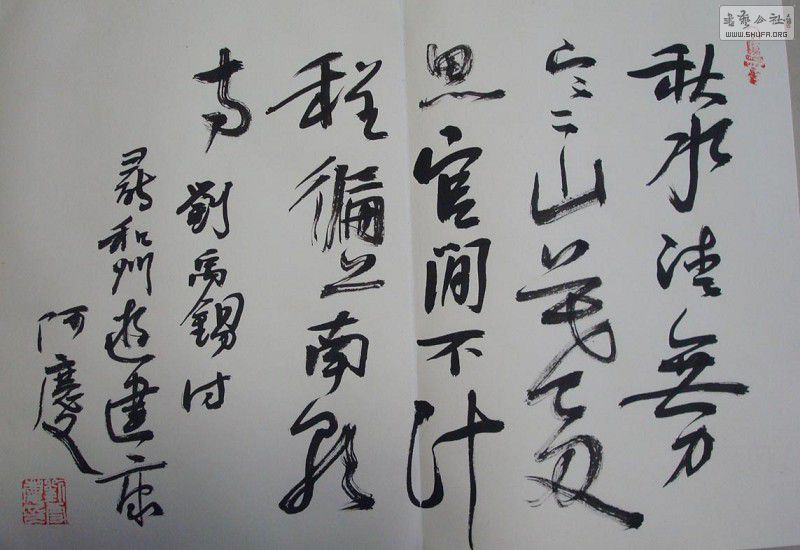 秋水清無力
寒山暮多
思官閒不計
程徧上南朝
寺 劉禹錫詩
罷和州遊建康
阿慶
書藝公社
WWW.SHUFA.ORG